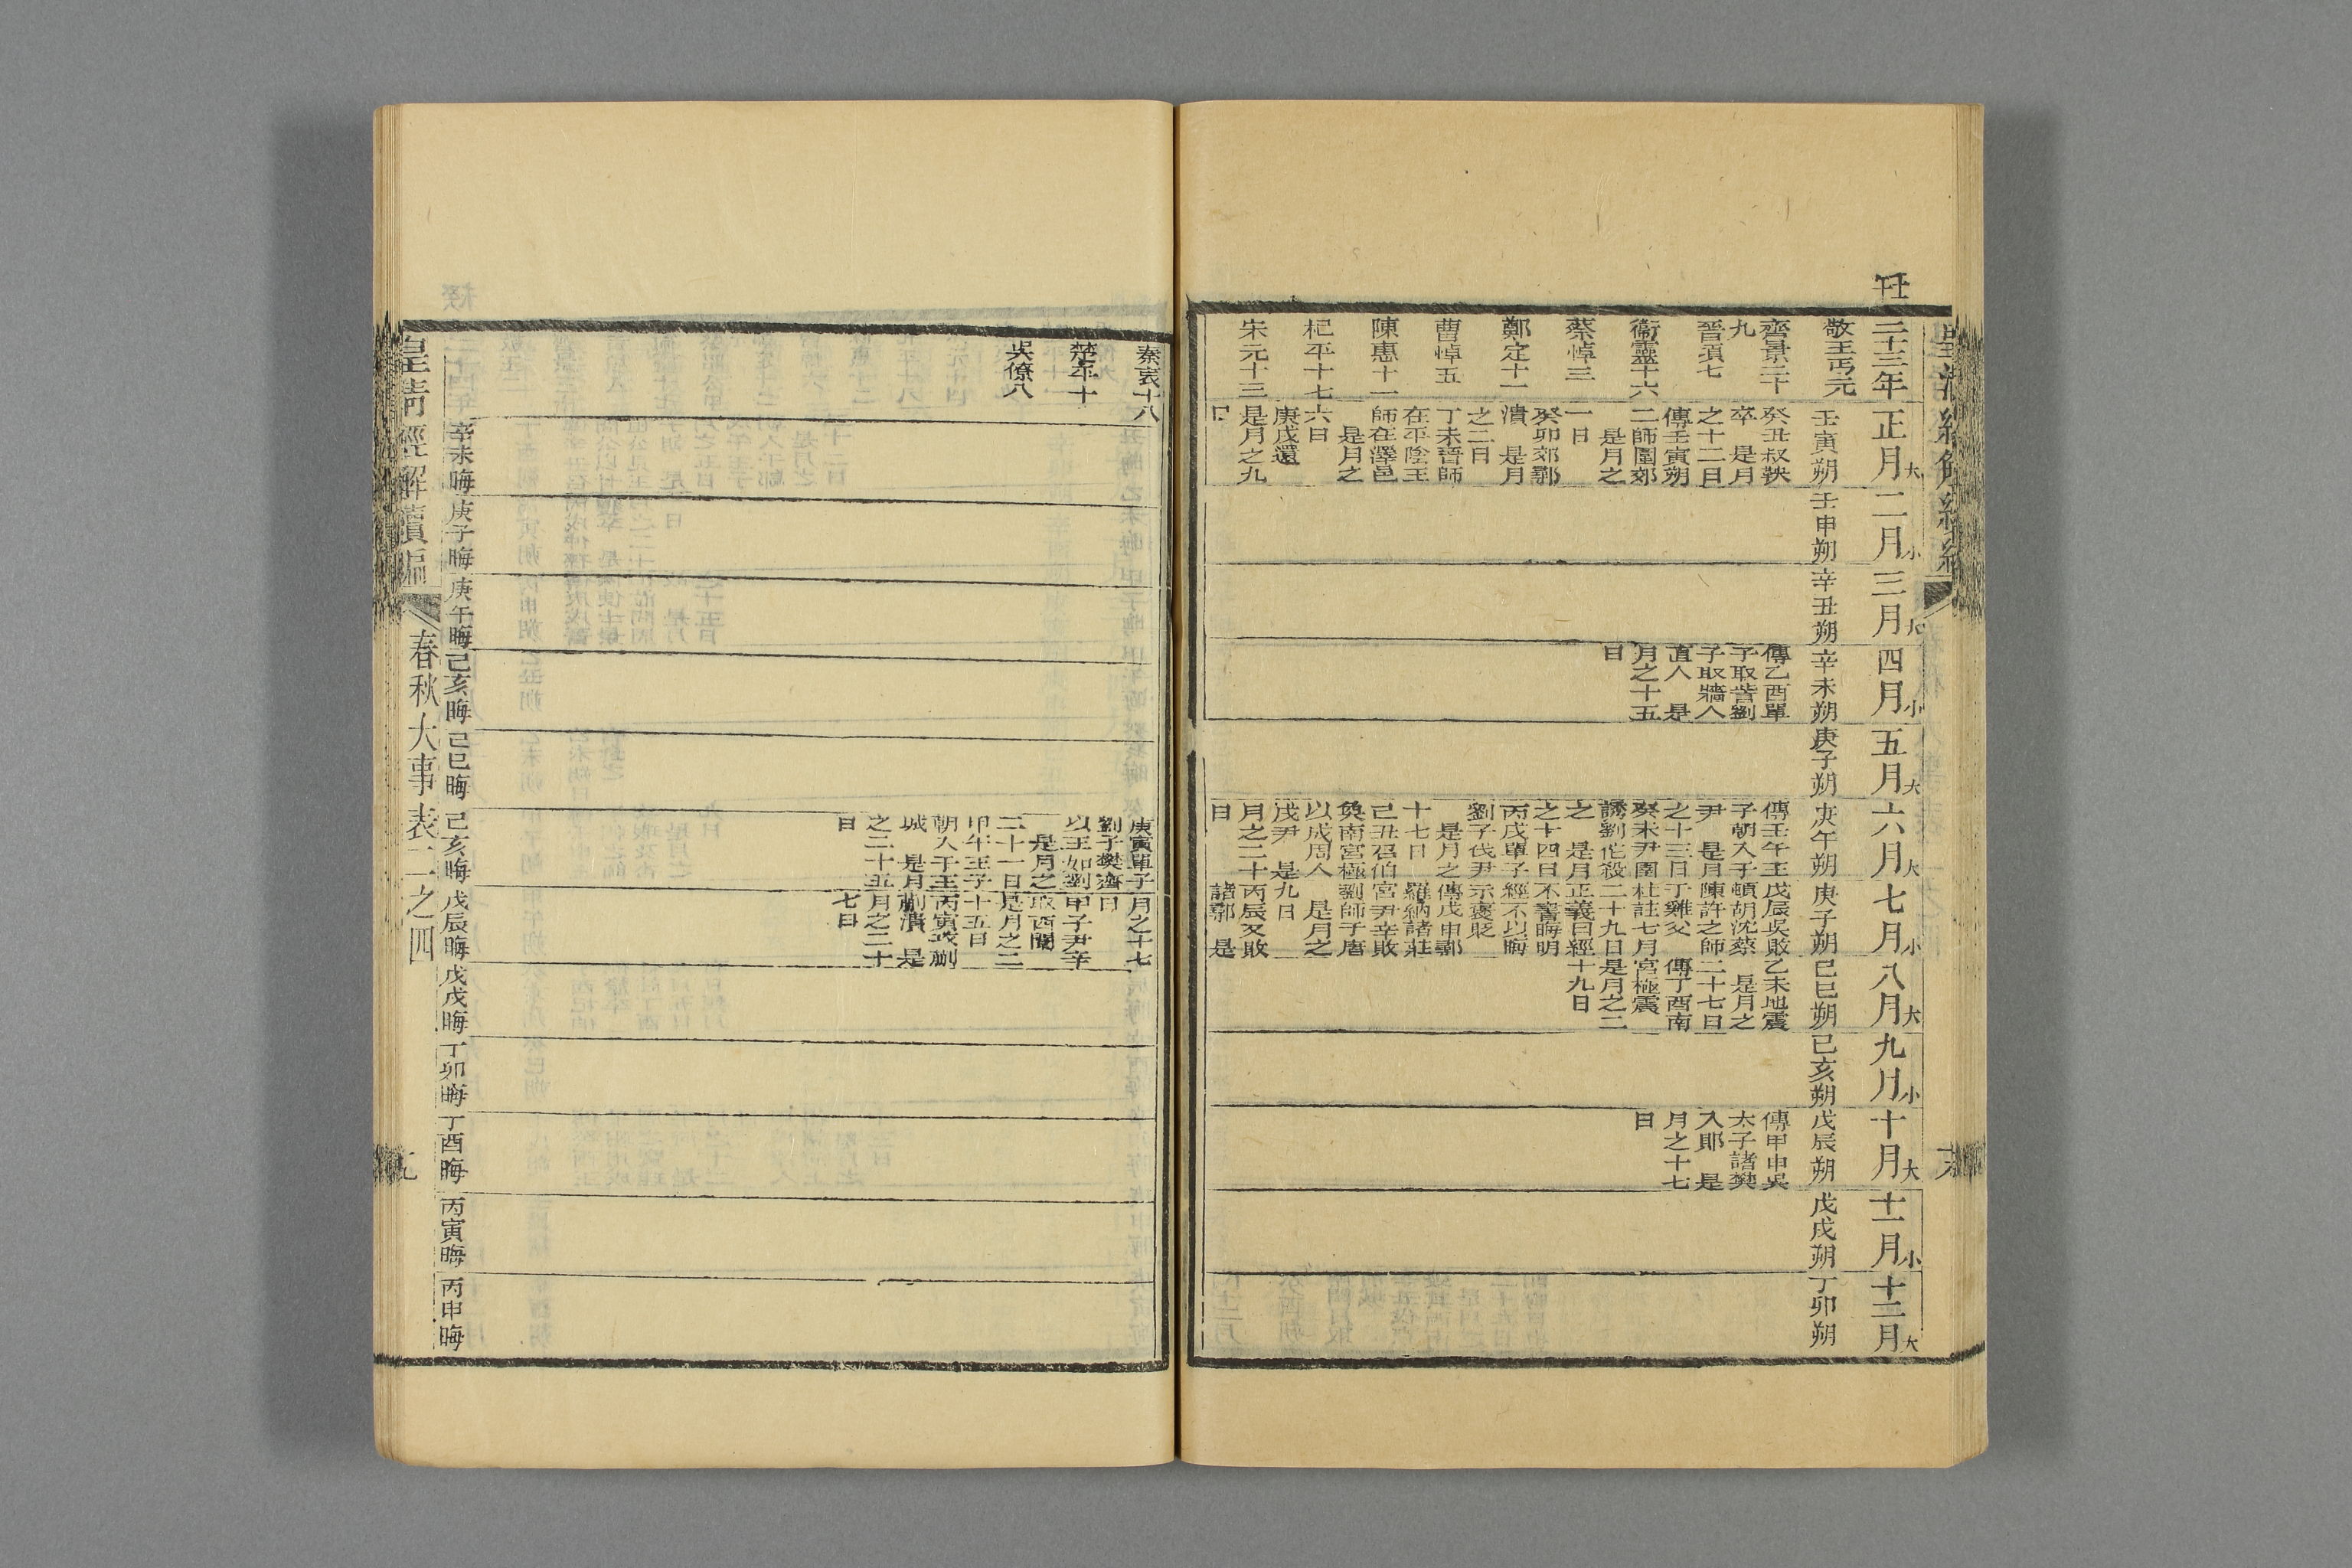 壬午
二十三年
正月大
二月小
三月大
四月小
五月大
六月大
七月小
八月大
九月小
十月大
十一月小
十二月大
敬王丐元
壬寅朔
壬申朔
辛丑朔
辛未朔
庚子朔
庚午朔
庚子朔
己巳朔
己亥朔
戊辰朔
戊戌朔
丁卯朔
齊景三十
九
晉頃七
衞靈十六
蔡悼三
鄭定十一
曹悼五
陳惠十一
杞平十七
宋元十三
癸丑叔鞅
卒 是月
之十二日
傳壬寅朔
二師圍郊
是月之
一日
癸卯郊鄩
潰 是月
之二日
丁未晉師
在平陰王
師在澤邑
是月之
六日
庚戌還
是月之九
日
傳乙酉單
子取訾劉
子取牆人
直人 是
月之十五
日
傳壬午王
子朝入于
尹 是月
之十三日
癸未尹圉
誘劉佗殺
之 是月
之十四日
丙戌單子
劉子伐尹
是月之
十七日
己丑召伯
奐南宮極
以成周人
戍尹 是
月之二十
日
戊辰吳敗
頓胡沈蔡
陳許之師
于雞父
杜註七月
二十九日
正義曰經
不書晦明
經不以晦
示褒貶
傳戊申鄩
羅納諸莊
宮尹辛敗
劉師于唐
是月之
九日
丙辰又敗
諸鄩 是
乙未地震
是月之
二十七日
傳丁酉南
宮極震
是月之二
十九日
傳甲申吳
太子諸樊
入郹 是
月之十七
日
秦哀十八
楚平十
吳僚八
庚寅單子
劉子樊齊
以王如劉
是月之
二十一日
甲午王子
朝入于王
城 是月
之二十五
日
月之十七
日
甲子尹辛
取西闈
是月之二
十五日
丙寅攻蒯
蒯潰 是
月之二十
七日
辛未晦
庚子晦
庚午晦
己亥晦
己巳晦
己亥晦
戊辰晦
戊戌晦
丁卯晦
丁酉晦
丙寅晦
丙申晦
皇淸經解續編
春秋大事表二之四